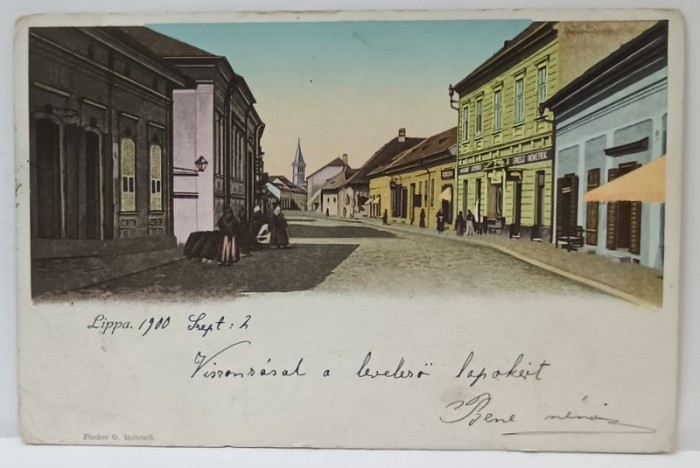 Lippa. 1900 Szept: 2
Viszonzásul a levelező lapokért
Bene néni
Fischer G. Innbruck.